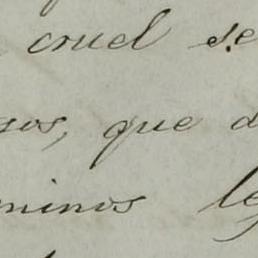 cruel se
sos, que d
minos le